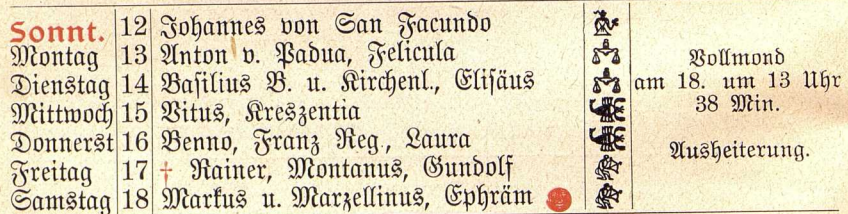 Sonnt. 12 Johannes von San Facundo
Montag 13 Anton v. Padua, Felicula
Dienstag 14 Basilius B. u. Kirchenl., Elisäus
Mittwoch 15 Vitus, Kreszentia
Donnerst 16 Benno, Franz Reg., Laura
Freitag 17 † Rainer, Montanus, Gundolf
Samstag 18 Markus u. Marzellinus, Ephräm
Vollmond
am 18. um 13 Uhr
38 Min.
Ausheiterung.